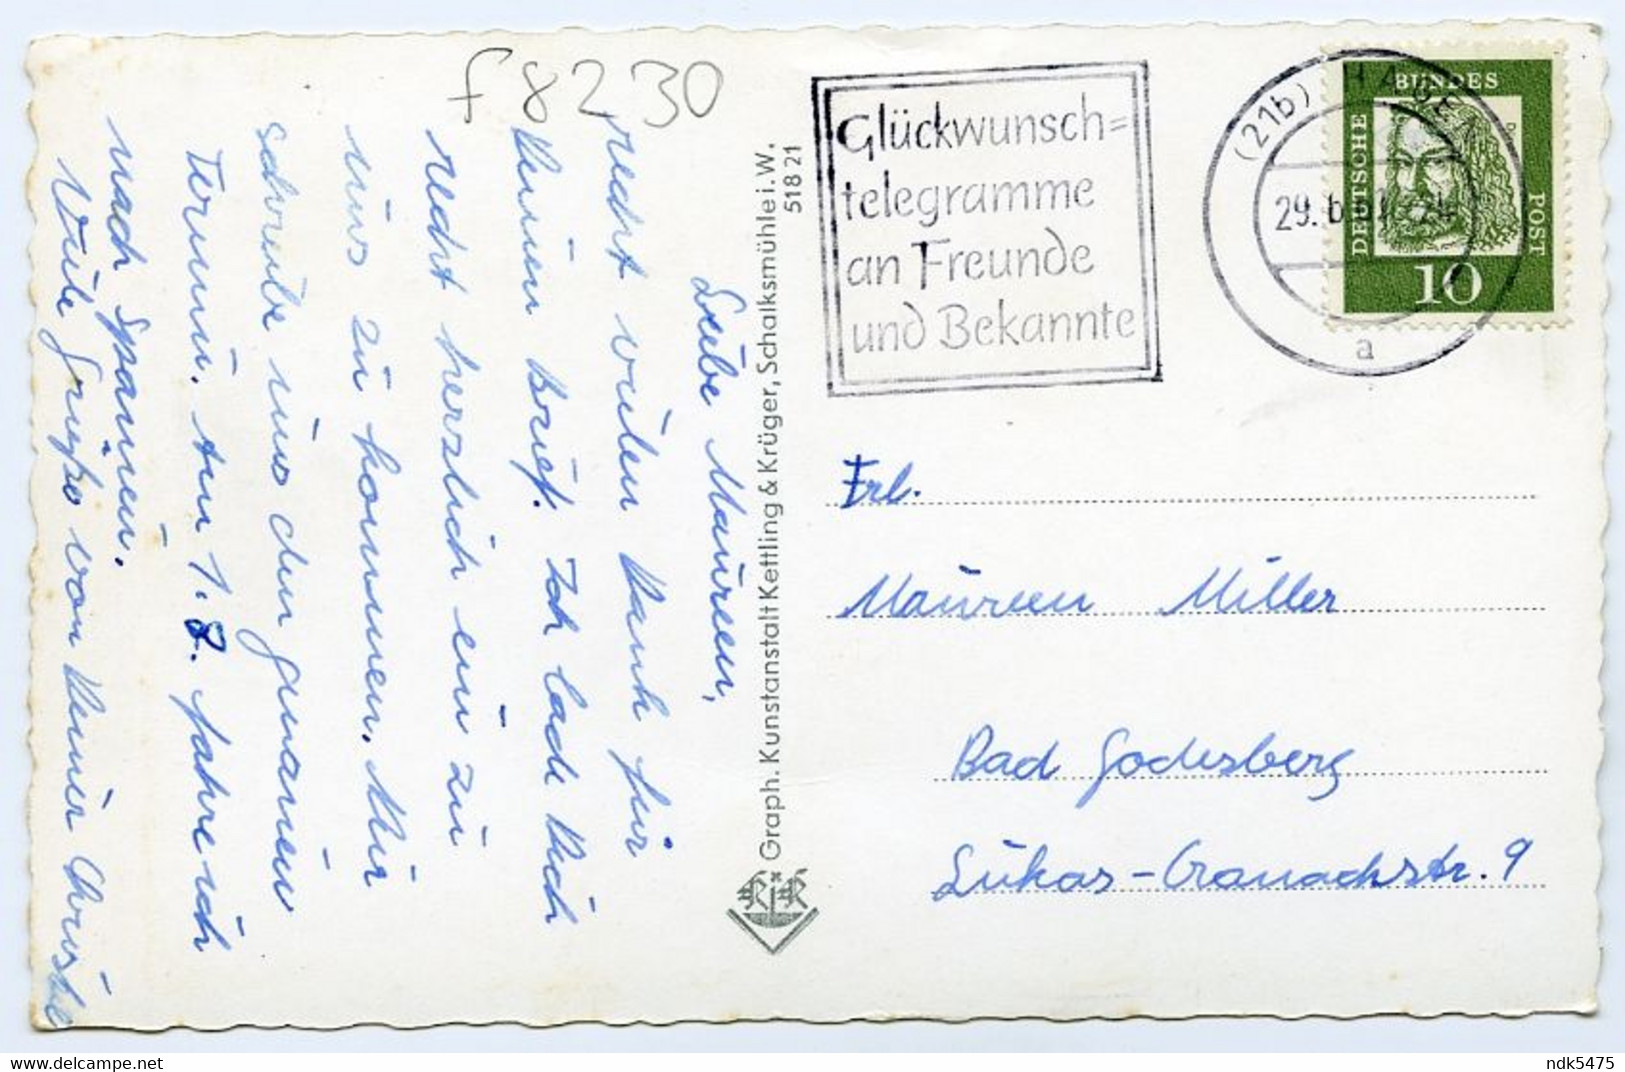 f 8230
Liebe Maureen,
recht vielen Dank für
Deinen Brief. Ich lade Dich
recht herzlich ein zu
uns zu kommen. Mir
schreibe uns den genauen
Termin. Am 1. 8. fahre ich
nach Spanien.
Viele Grüße von Deiner Christel
Graph. Kunstanstalt Kettling & Krüger, Schalksmühle i. W.
51821
Glückwunsch=
telegramme
an Freunde
und Bekannte
(21b) HAGEN
29.-6.61
a
DEUTSCHE
BUNDES
POST
10
Frl.
Maureen Miller
Bad Godesberg
Lukas-Cranachstr. 9
delcampe.net
ndk5475